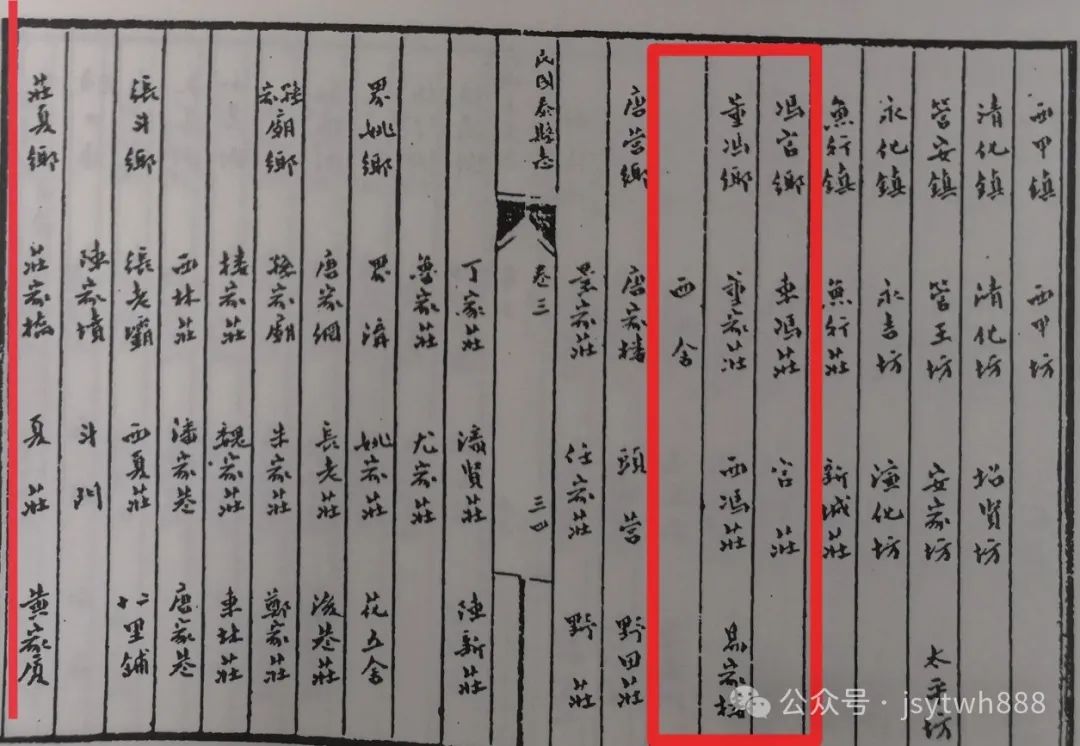 西甲鎮 西甲坊
清化鎮 清化坊 招賢坊
管安鎮 管王坊 安家坊 太平坊
永化鎮 永吉坊 濂化坊
魚行鎮 魚行莊 新城莊
馮宫鄉 東馮莊 宫莊
董馮鄉 董家莊 西馮莊
西舍
唐營鄉 唐家樓 頭營 野田莊
景家莊 任家莊 野莊
民國泰縣志 卷三 三四
丁家莊 濤賢莊 陸新莊
魯家莊 尤家莊
界姚鄉 界溝 姚家莊 花五舍
唐家網 長老莊 凌巷莊
孫家廟 朱家莊 鄭家莊
樓家莊 魏家莊 東林莊
西林莊 潘家巷 唐家巷
張斗鄉 張老壩 西夏莊 十二里鋪
陳家墳 斗門
莊夏鄉 莊家橋 夏莊 黄家厦
公众号·jsytwh888